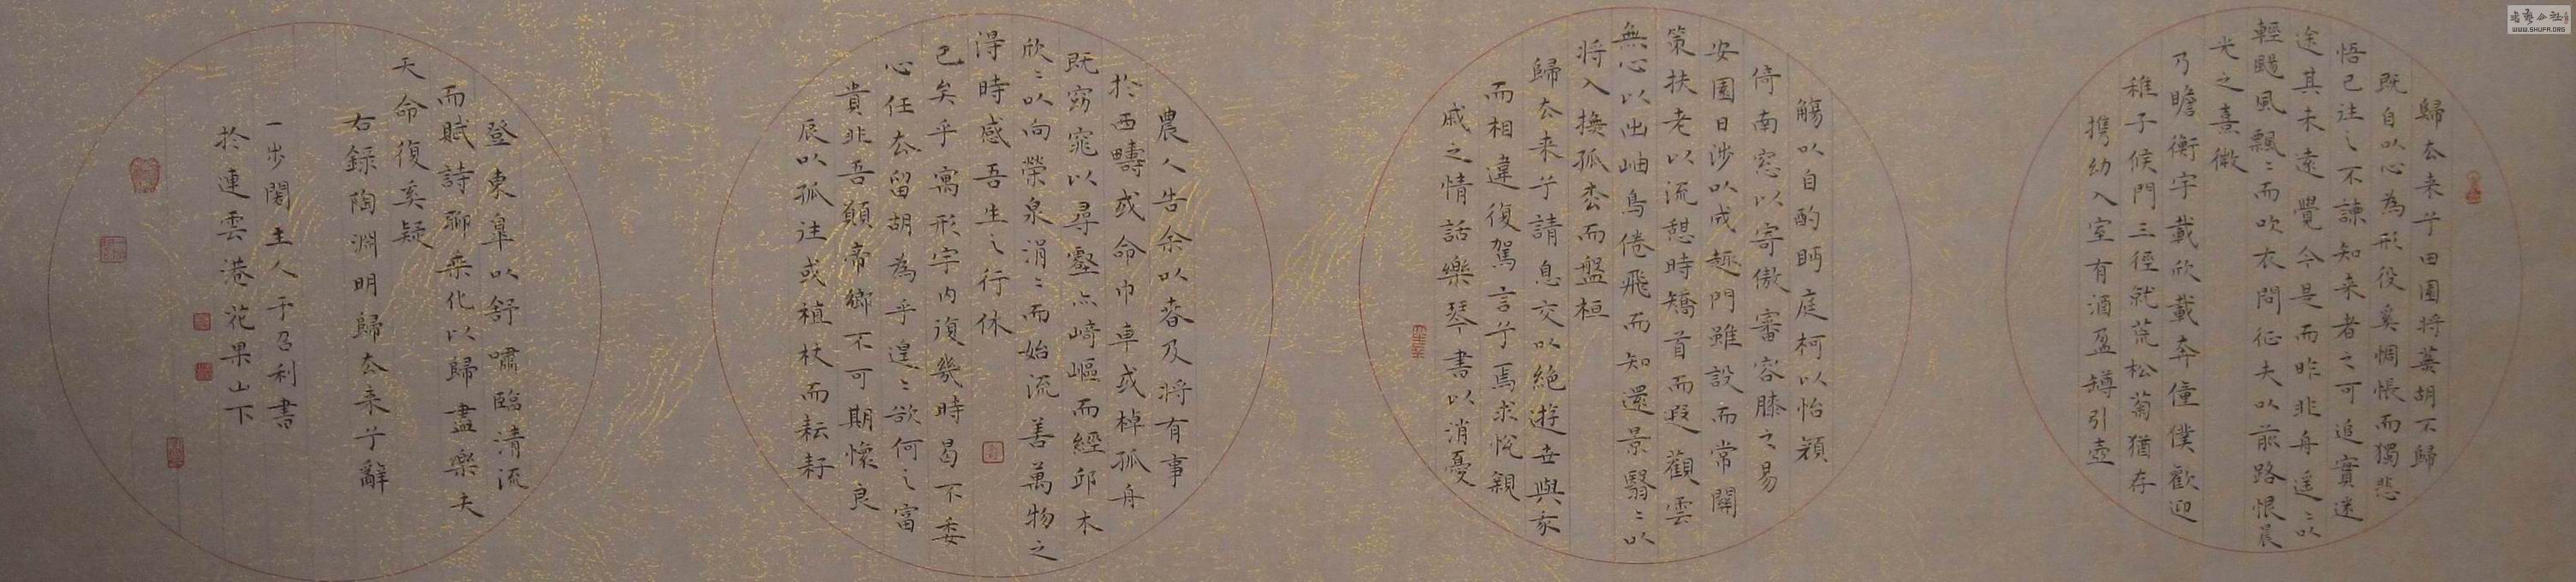 歸去来兮田園将蕪胡不歸
既自以心為形役奚惆悵而獨悲
悟已往之不諫知来者之可追實迷
途其未遠覺今是而昨非舟遥〻以
輕颺風飄〻而吹衣問征夫以前路恨晨
光之熹微
乃瞻衡宇載欣載奔僮僕歡迎
稚子候門三徑就荒松菊猶存
携幼入室有酒盈罇引壺
觴以自酌眄庭柯以怡顔
倚南窓以寄傲審容膝之易
安園日涉以成趣門雖設而常關
策扶老以流憩時矯首而遐觀雲
無心以出岫鳥倦飛而知還景翳〻以
将入撫孤松而盤桓
歸去来兮請息交以絶遊世與我
而相違復駕言兮焉求悅親
戚之情話樂琴書以消憂
農人告余以春及将有事
於西疇或命巾車或棹孤舟
既窈窕以尋壑亦崎嶇而經邱木
欣〻以向榮泉涓〻而始流善萬物之
得時感吾生之行休
已矣乎寓形宇内復幾時曷不委
心任去留胡為乎遑〻欲何之富
貴非吾願帝鄉不可期懷良
辰以孤往或植杖而耘耔
登東皐以舒嘯臨清流
而賦詩聊乗化以歸盡樂夫
天命復奚疑
右録陶淵明歸去来兮辭
一步閣主人于召利書
於連雲港花果山下
WWW.SHUFA.ORG